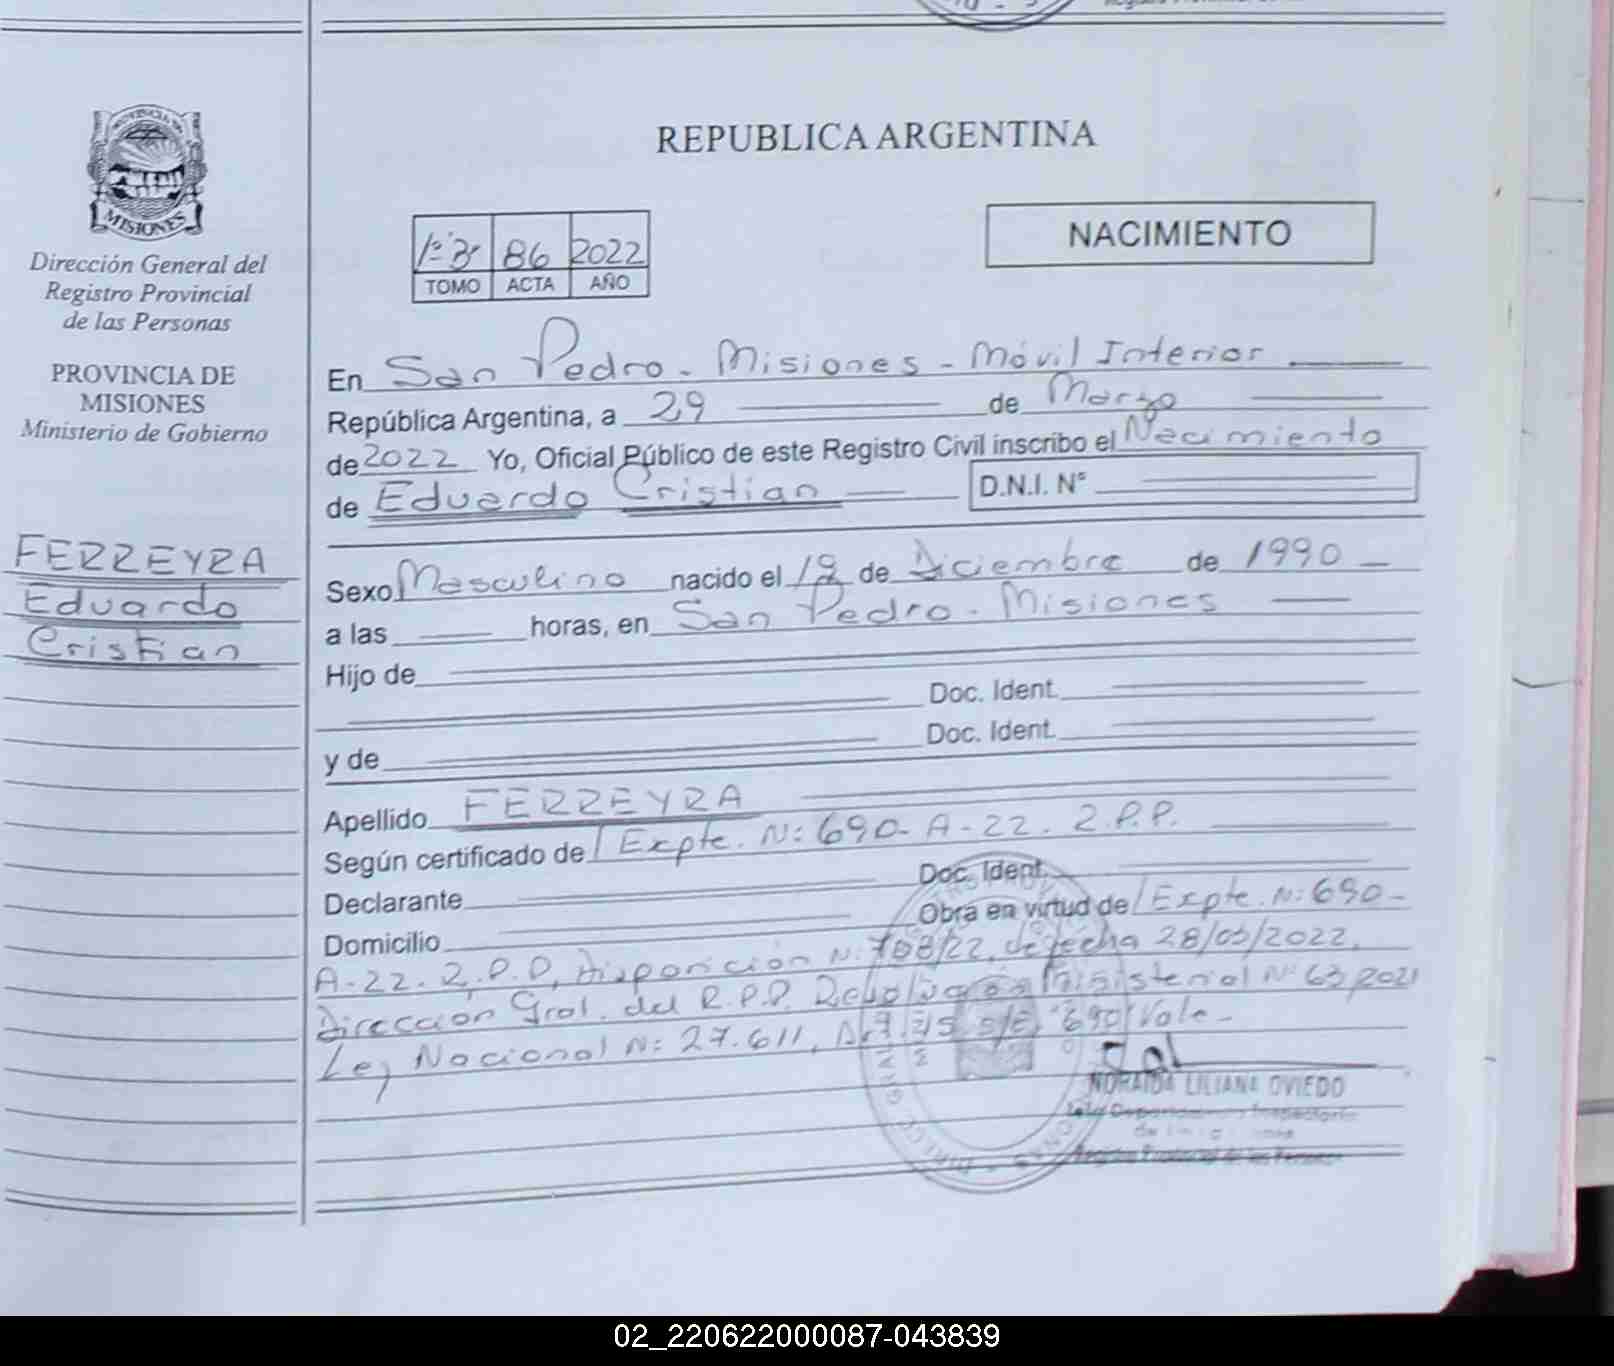 REPUBLICA ARGENTINA
PROVINCIA DE
MISIONES
Dirección General del
Registro Provincial
de las Personas
PROVINCIA DE
MISIONES
Ministerio de Gobierno
FERREYRA
Eduardo
Cristian
86 2022
TOMO ACTA AÑO
NACIMIENTO
En San Pedro - Misiones - Móvil Interior
República Argentina, a 29 de Marzo
de 2022 Yo, Oficial Público de este Registro Civil inscribo el Nacimiento
de Eduardo Cristian D.N.I. N°
Sexo Masculino nacido el de Diciembre de 1990
a las horas, en San Pedro - Misiones
Hijo de
Doc. Ident.
y de Doc. Ident.
Apellido FERREYRA
Según certificado de Expte. N: 690-A-22. R.P.P.
Declarante Doc. Ident.
Domicilio Obra en virtud de Expte. N: 690-
A-22. R.P.P, Disposición N: 788/22, de fecha 28/03/2022,
Dirección Gral. del R.P.P. Resolución Ministerial N° 63/2021
Ley Nacional N: 27.611, S/E "690" Vale-
NORAIDA LILIANA OVIEDO
Registro Provincial de las Personas
02_220622000087-043839